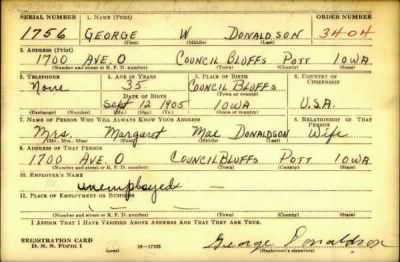 SERIAL NUMBER 1. NAME (Print) ORDER NUMBER
1756 GEORGE W DONALDSON 3404
(First) (Middle) (Last)
2. ADDRESS (Print)
1700 AVE. O COUNCIL BLUFFS POTT IOWA.
(Number and street or R. F. D. number) (Town) (County) (State)
3. TELEPHONE 4. AGE IN YEARS 5. PLACE OF BIRTH 6. COUNTRY OF CITIZENSHIP
None 35 COUNCIL BLUFFS
DATE OF BIRTH (Town or county)
Sept 12 1905 IOWA U.S.A.
(Exchange) (Number) (Mo.) (Day) (Yr.) (State or country)
7. NAME OF PERSON WHO WILL ALWAYS KNOW YOUR ADDRESS 8. RELATIONSHIP OF THAT PERSON
Mrs. Margaret Mae DONALDSON Wife
(Mr., Mrs., Miss) (First) (Middle) (Last)
9. ADDRESS OF THAT PERSON
1700 AVE. O COUNCIL BLUFFS POTT IOWA.
(Number and street or R. F. D. number) (Town) (County) (State)
10. EMPLOYER'S NAME
unemployed —
11. PLACE OF EMPLOYMENT OR BUSINESS
(Number and street or R. F. D. number) (Town) (County) (State)
I AFFIRM THAT I HAVE VERIFIED ABOVE ANSWERS AND THAT THEY ARE TRUE.
REGISTRATION CARD
D. S. S. Form 1 (over) 16—17105 George Donaldson
(Registrant's signature)